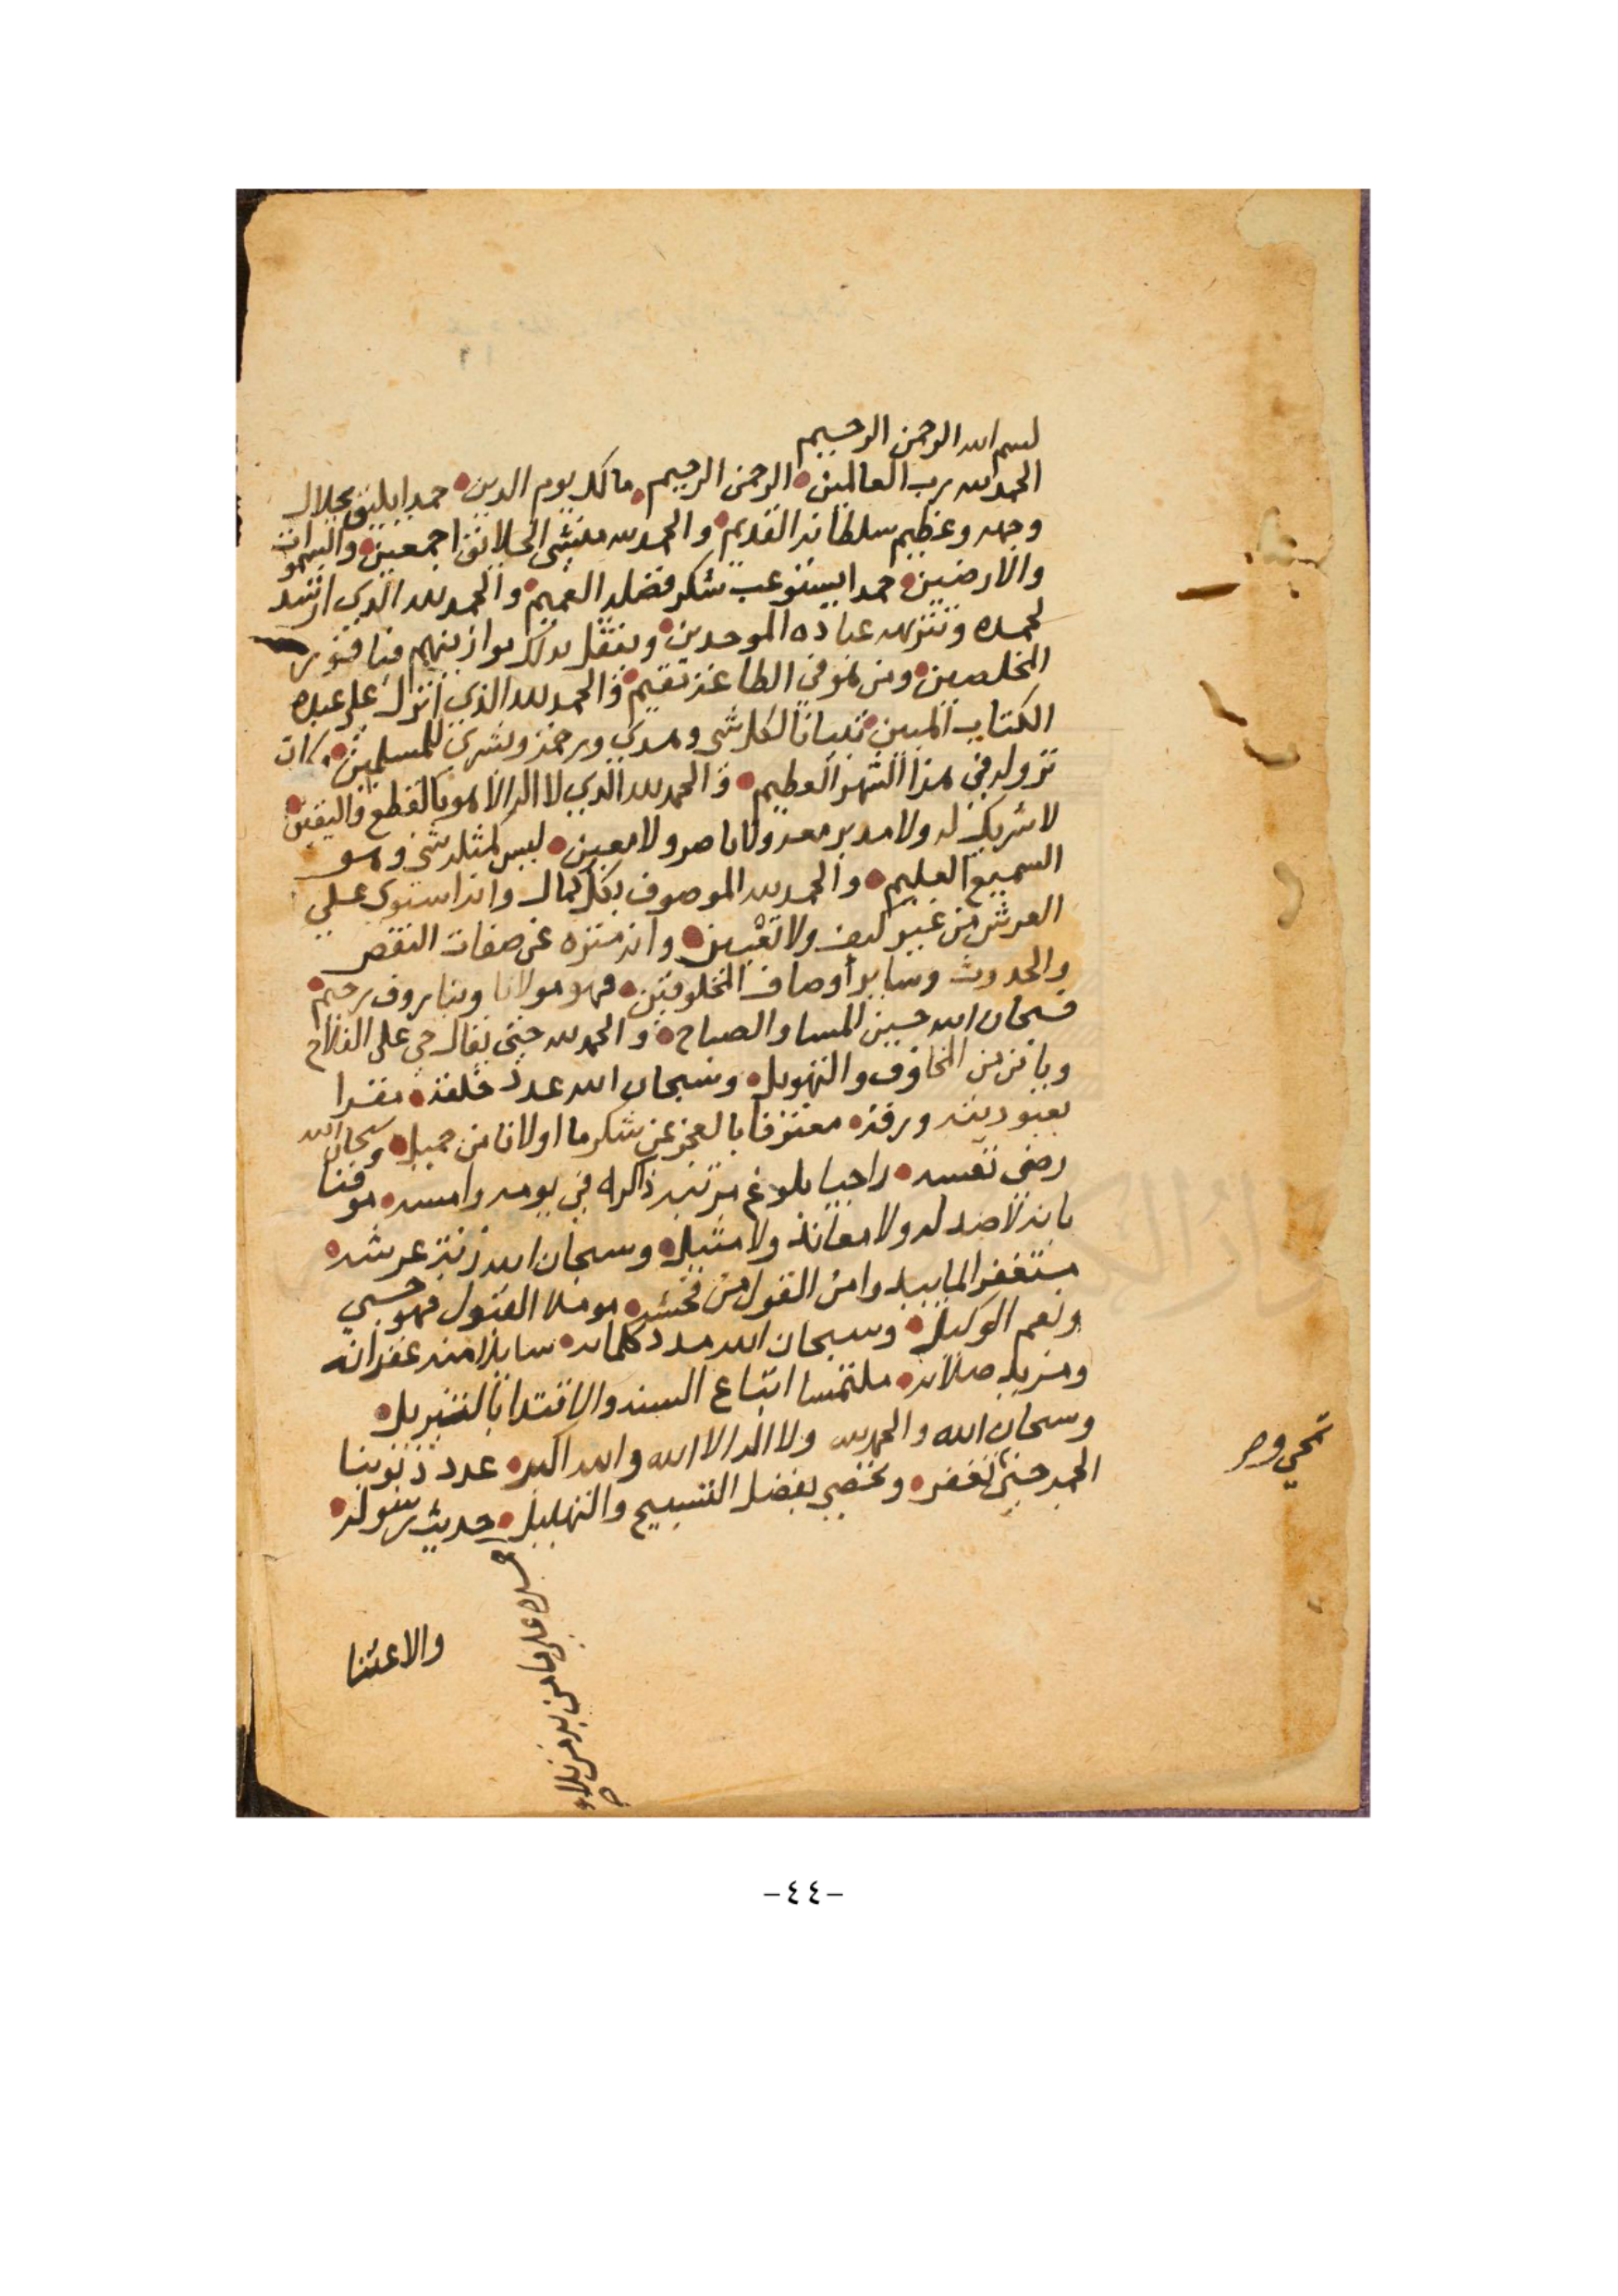 بسم الله الرحمن الرحيم
الحمد لله رب العالمين الرحمن الرحيم مالك يوم الدين حمدا يليق بجلال
وجهه وعظيم سلطانه القديم والحمد لله منشئ الخلائق اجمعين والسموات
والارضين حمدا يستوعب شكر فضله العميم والحمد لله الذي ارشد
لحمده وتنزيهه عباده الموحدين وبثقل بذلك موازينهم فيا فوز
المخلصين ومن هو في الطاعة مقيم والحمد لله الذي انزل على عبده
الكتاب المبين تبيانا لكل شي وهدى ورحمة وبشرى للمسلمين وكان
نزوله في هذا الشهر العظيم والحمد لله الذي لا اله الا هو بالقطع واليقين
لا شريك له ولا مدبر معه ولا ناصر ولا معين ليس كمثله شي وهو
السميع العليم والحمد لله الموصوف بكل كمال وانه استوى على
العرش من غير كيف ولا تعيين وانه منزه عن صفات النقص
والحدوث وساير أوصاف المخلوقين فهو مولانا وبنا روف رحيم
فسبحان الله حين المسا والصباح والحمد لله حين يقال حي على الفلاح
ويامن من المخاوف والتهويل وسبحان الله عدد خلقه مقرا
بعبوديته ورقه معترفا بالعجز عن شكر ما اولانا من جميل وسبحان الله
رضى نفسه راجيا بلوغ مرتبة ذاكره في يومه وامسه موقنا
بانه لا ضد له ولا معاند ولا مثيل وسبحان الله زنة عرشه
مستغفرا لما بيد وامن القول من فحشه مومل القبول فهو حسبي
ونعم الوكيل وسبحان الله مدد كلماته سايلا منه غفرانه
ومزيد صلاته ملتمسا اتباع السنة والاقتدا بالتنزيل
وسبحان الله والحمد لله ولا اله الا الله والله اكبر عدد ذنوبنا
حتى تغفر وتختص بفضل التسبيح والتهليل حديث رسوله
والاعتنا
-٤٤-